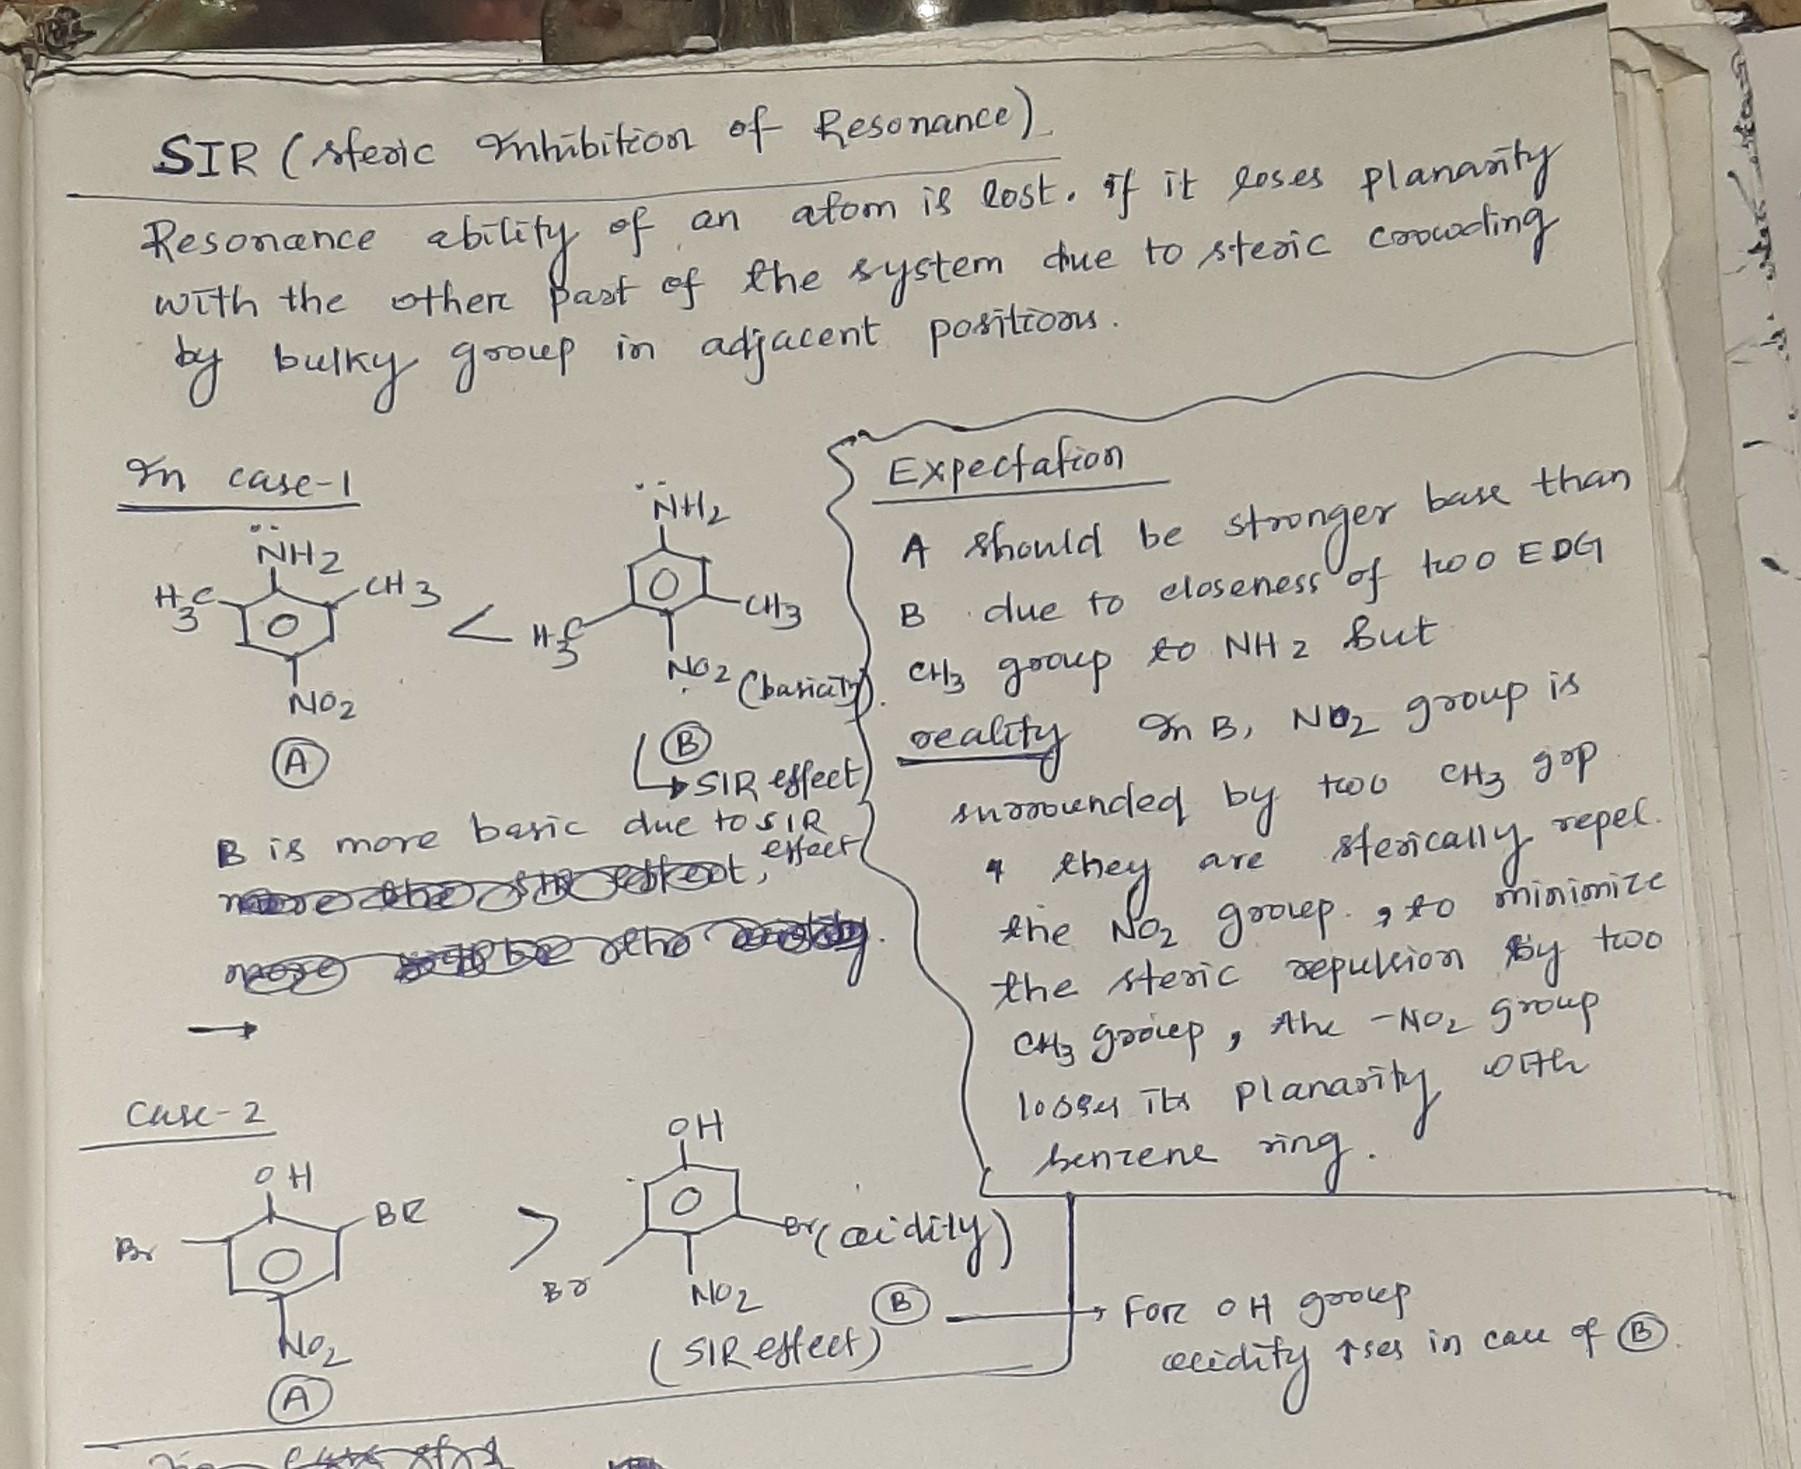 SIR (steric Inhibition of Resonance)
Resonance ability of an atom is lost. if it loses planarity
with the other part of the system due to steric crowding
by bulky group in adjacent positions.
In case-1
NH2
H3C
CH3
NO2
A
<
NH2
H3C
CH3
NO2 (basicity).
B
SIR effect
B is more basic due to SIR
effect
Expectation
A should be stronger base than
B due to closeness of two EDG
CH3 group to NH2 But
reality In B, NO2 group is
surrounded by two CH3 grp
& they are sterically repel.
the NO2 group. , to minimize
the steric repulsion By two
CH3 group, the -NO2 group
losses its planarity with
benzene ring.
Case-2
OH
Br
BR
NO2
A
>
OH
Br
Br (acidity)
NO2
B
(SIR effect)
For OH group
acidity ↑ses in case of B.